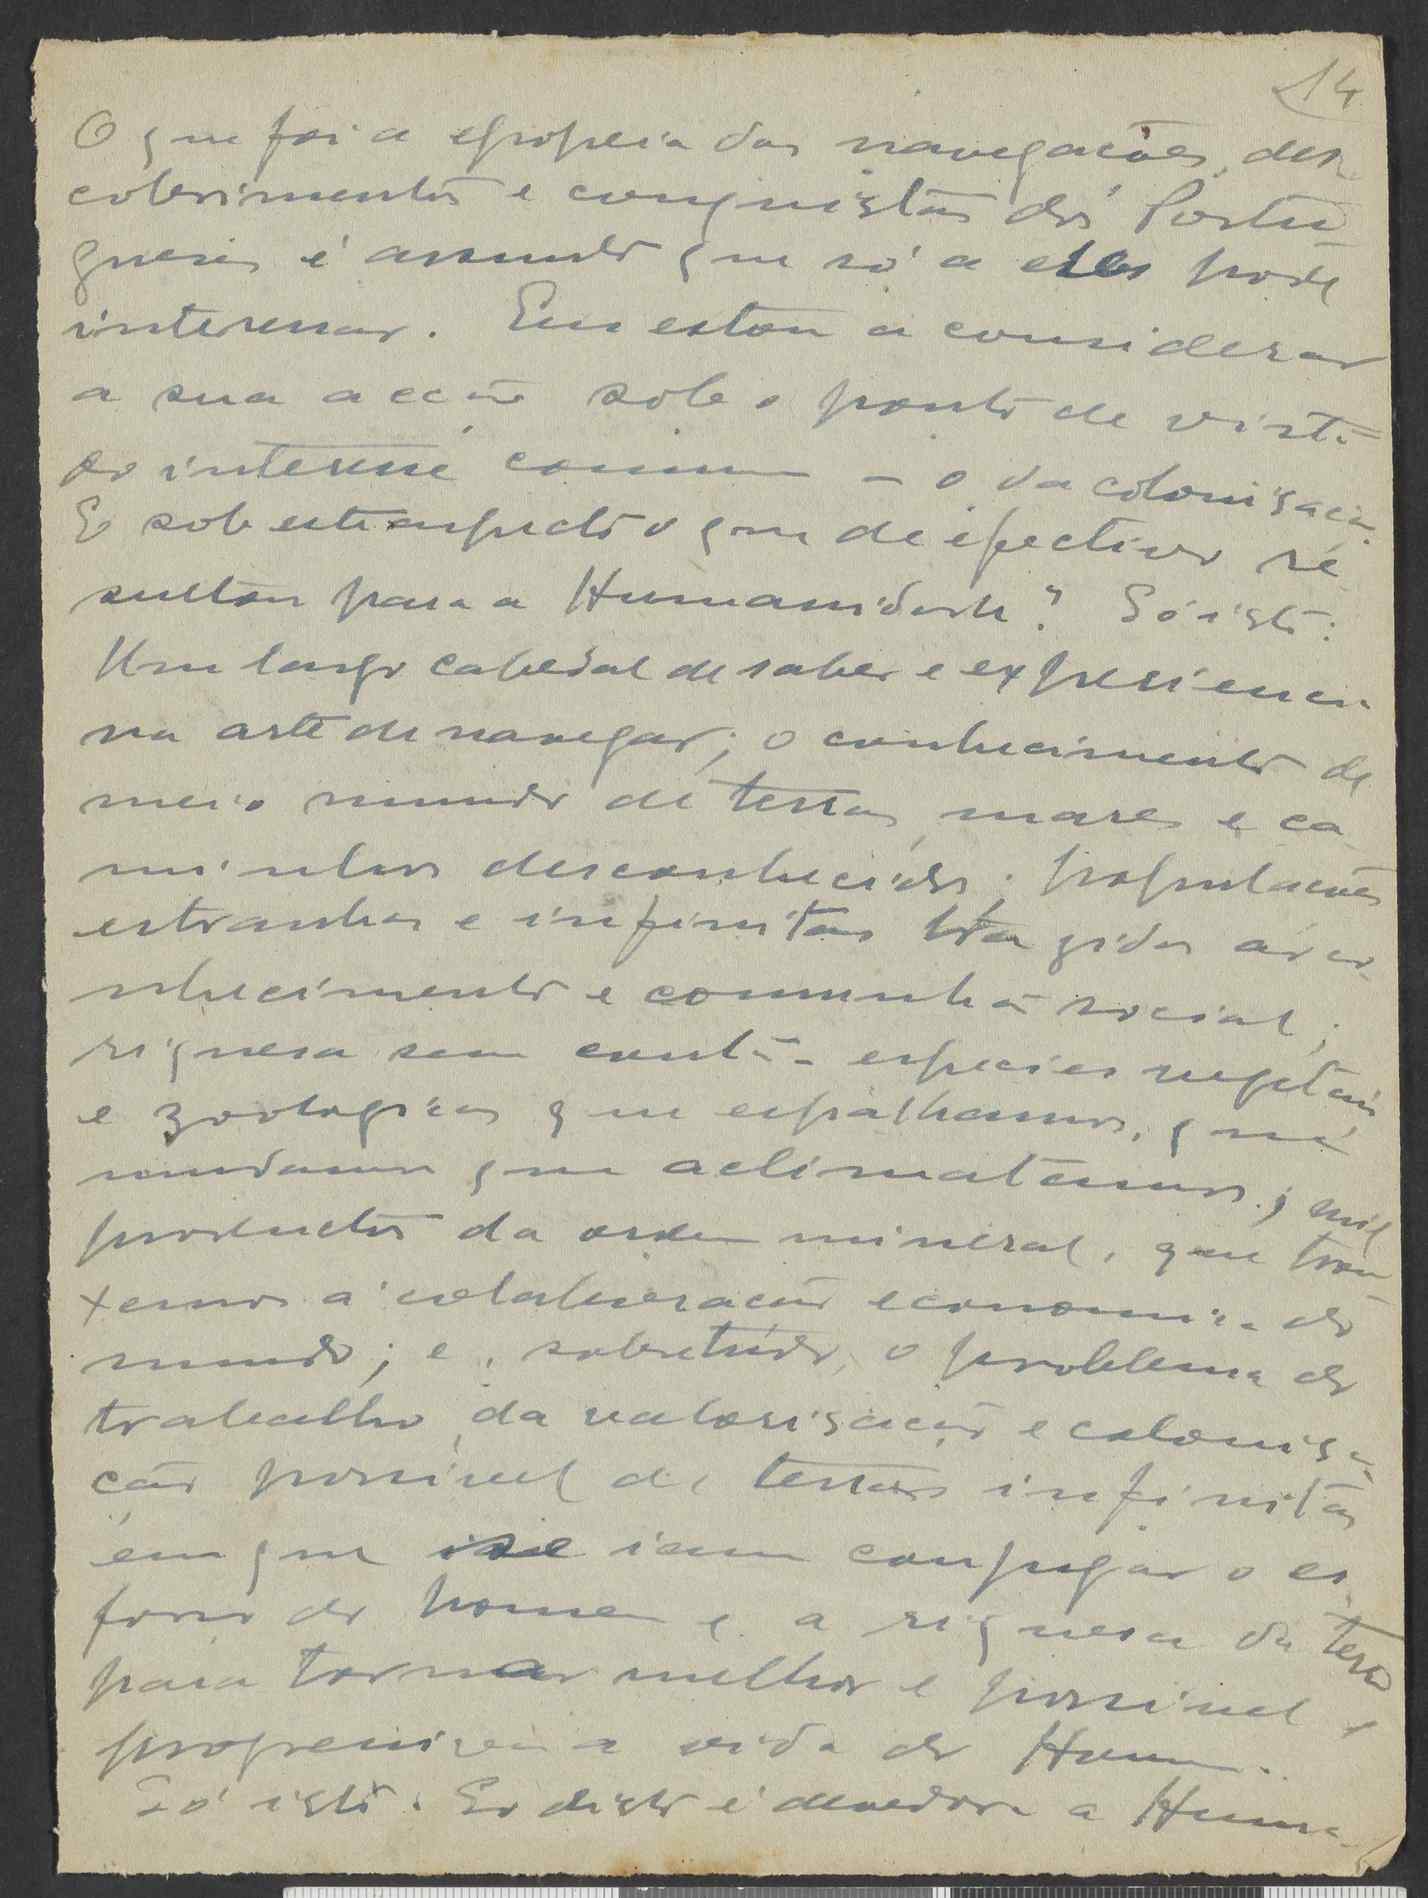 14
O que foi a epopeia das navegações, des-
cobrimentos e conquistas dos Portu
gueses é assunto que só a eles pode
interessar. Eu estou a considerar
a sua acção sob o ponto de vista
do interesse comum – o da colonisação.
E sob este aspecto o que de efectivo re
sultou para a Humanidade? Só isto:
Um largo cabedal de saber e experiencia
na arte de navegar; o conhecimento de
meio mundo de terras, mares e ca-
minhos desconhecidos; populações
estranhas e infinitas trazidas ao co-
nhecimento e comunhão social;
riquesa sem conta – especies vegetais
e zoologicas que espalhamos, que
mudamos que aclimatamos; mil
productos da ordem mineral, que trou
xemos á colaboração economica do
mundo; e, sobretudo, o problema do
trabalho, da valorisação e colonisa-
ção possivel de terras infinitas
em que se iam conjugar o es-
forço do homem e a riquesa da terra
para tornar melhor e possivel e
progressiva a vida do Homem.
Só isto. E disto é devedora a Huma-